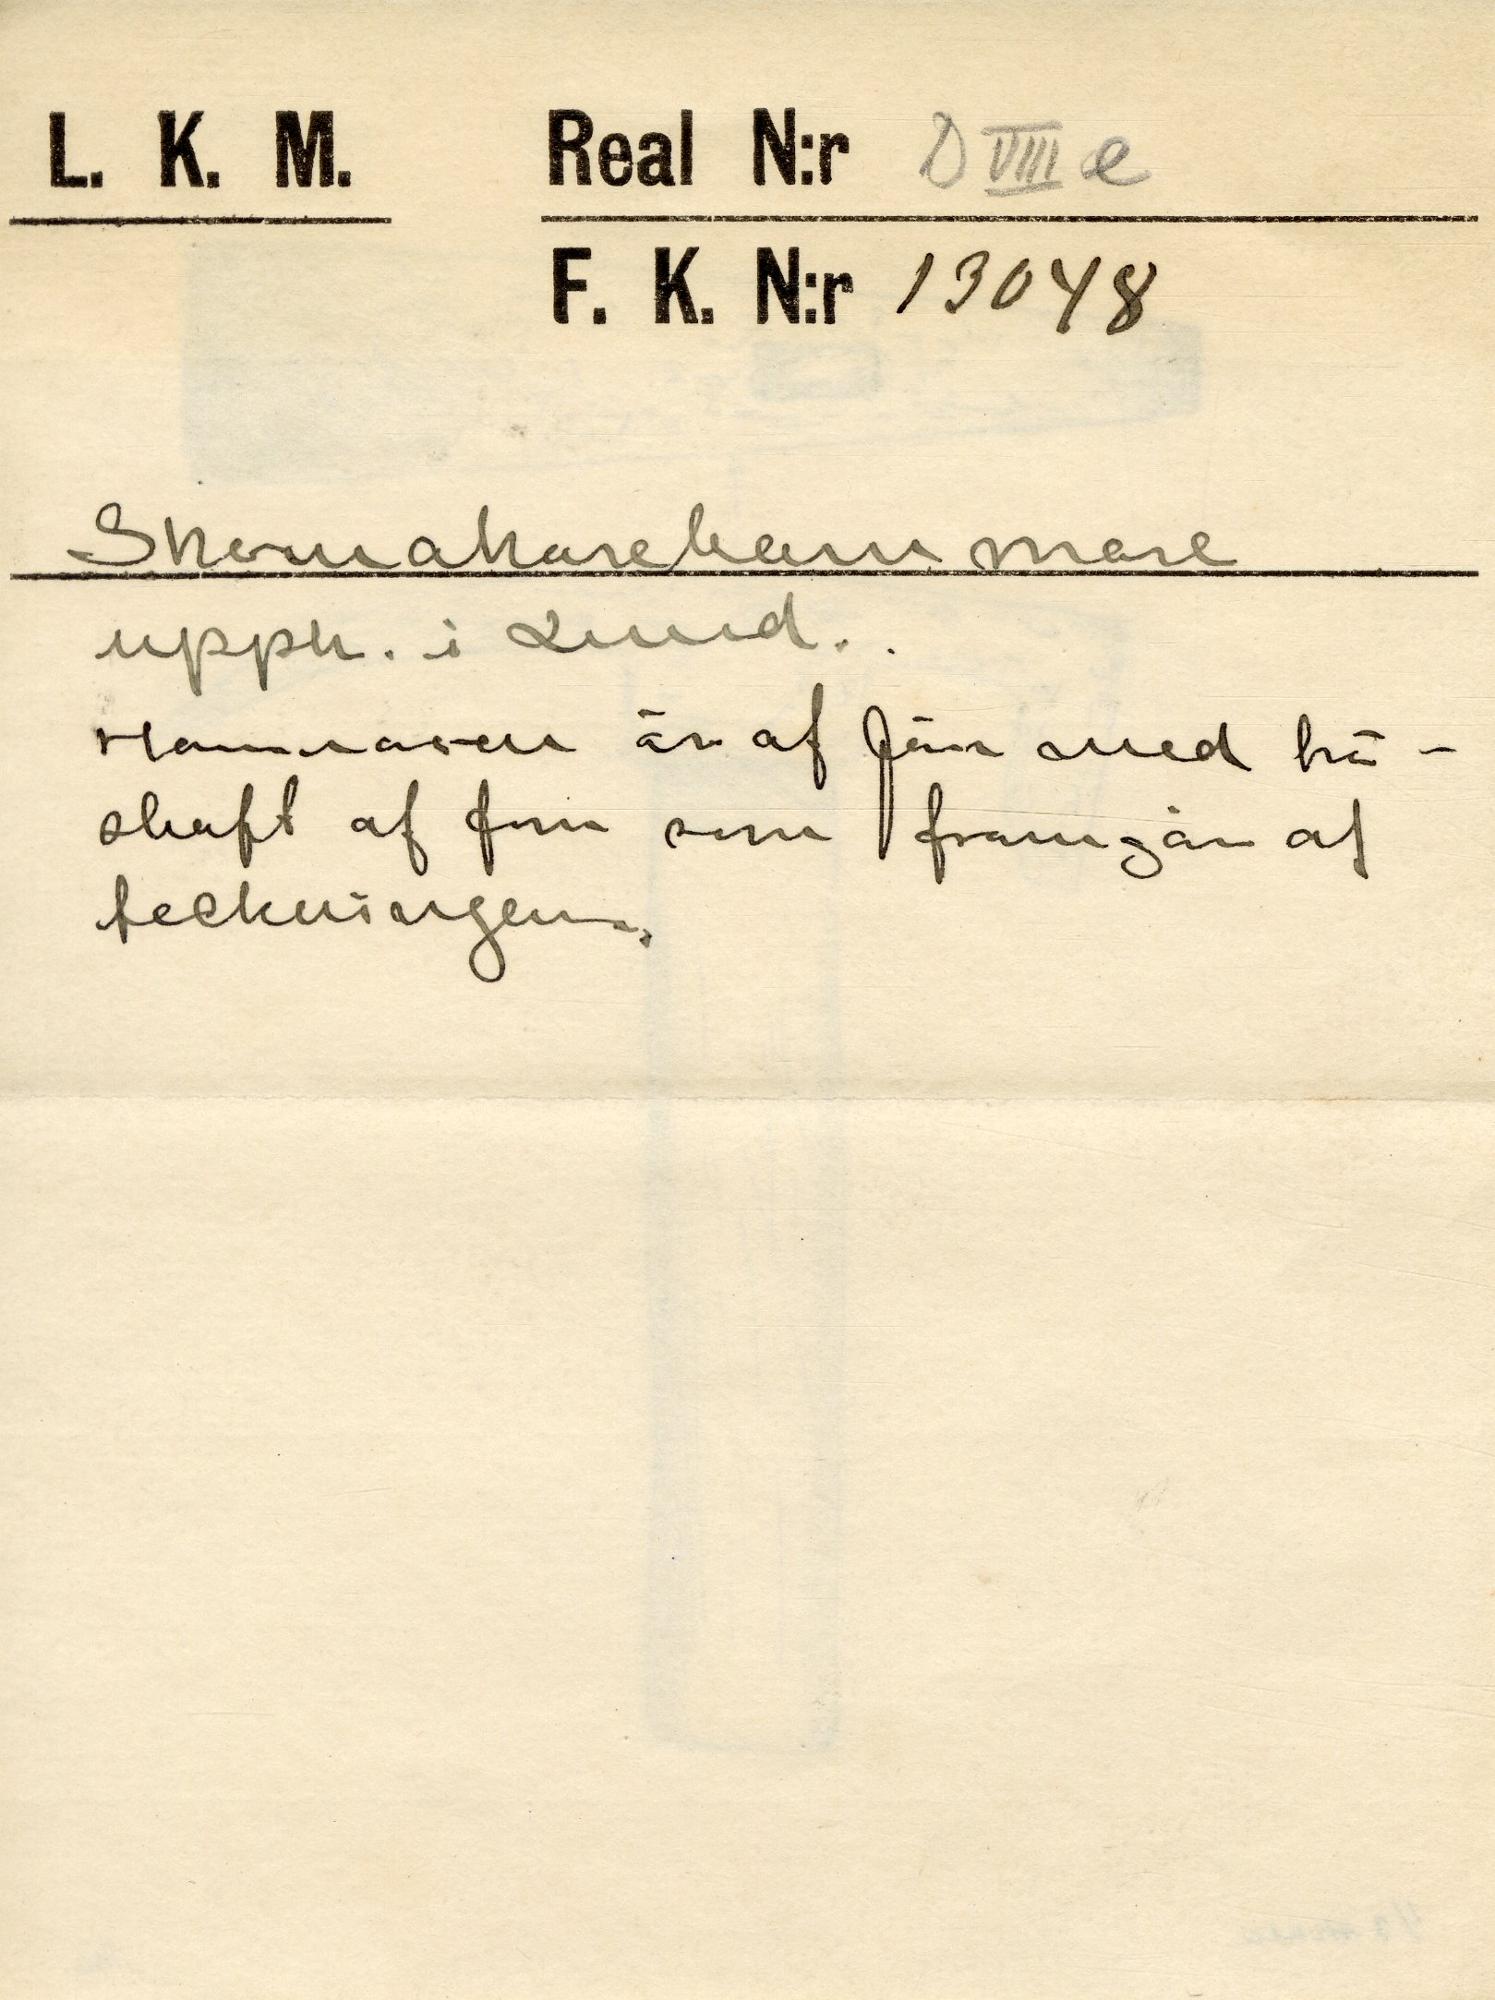 L. K. M. Real N:r D VIII e
F. K. N:r 13048
Skomakarehammare
upph. i Lund.
Hammaren är af järn med trä-
skaft af form som framgår af
teckningen.